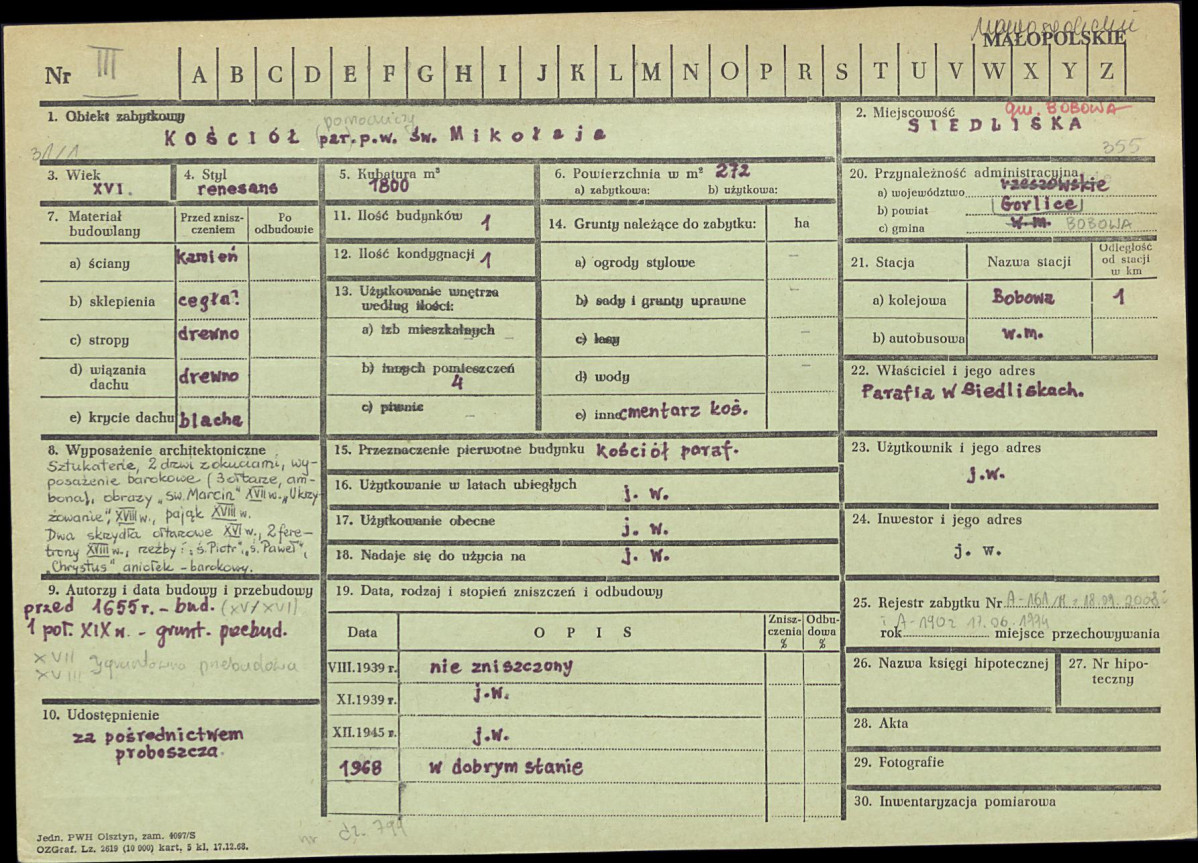 MAŁOPOLSKIE
Nr III A B C D E F G H I J K L M N O P R S T U V W X Y Z
1. Obiekt zabytkowy
pomocniczy
KOŚCIÓŁ par. p.w. św. Mikołaja
31/1
2. Miejscowość gm. BOBOWA
SIEDLISKA
355
3. Wiek
XVI.
4. Styl
renesans
5. Kubatura m³
1800
6. Powierzchnia w m² 272
a) zabytkowa: b) użytkowa:
7. Materiał budowlany
Przed zniszczeniem
Po odbudowie
a) ściany kamień
b) sklepienia cegła?
c) stropy drewno
d) wiązania dachu drewno
e) krycie dachu blacha
8. Wyposażenie architektoniczne
Sztukaterie, 2 drzwi z okuciami, wy-
posażenie barokowe (3 ołtarze, am-
bona), obrazy „św. Marcin" XVII w. „Ukrzy-
żowanie", XVIII w., pająk XVIII w.
Dwa skrzydła ołtarzowe XVI w., 2 fere-
trony XVIII w., rzeźby: „ś. Piotr", „ś. Paweł",
„Chrystus" aniołek - barokowy.
9. Autorzy i data budowy i przebudowy
przed 1655 r. - bud. (XV/XVI)
1 poł. XIX w. - grunt. przebud.
XVII gruntowna przebudowa
XVIII
10. Udostępnienie
za pośrednictwem
proboszcza.
11. Ilość budynków 1
12. Ilość kondygnacji 1
13. Użytkowanie wnętrza
według ilości:
a) izb mieszkalnych
b) innych pomieszczeń
4
c) piwnic
14. Grunty należące do zabytku: ha
a) ogrody stylowe –
b) sady i grunty uprawne –
c) lasy –
d) wody –
e) inne cmentarz koś.
15. Przeznaczenie pierwotne budynku Kościół paraf.
16. Użytkowanie w latach ubiegłych j. w.
17. Użytkowanie obecne j. w.
18. Nadaje się do użycia na j. w.
19. Data, rodzaj i stopień zniszczeń i odbudowy
Data O P I S Zniszczenia % Odbudowa %
VIII.1939 r. nie zniszczony
XI.1939 r. j.w.
XII.1945 r. j.w.
1968 w dobrym stanie
20. Przynależność administracyjna
a) województwo rzeszowskie
b) powiat Gorlice
c) gmina w.m. BOBOWA
21. Stacja Nazwa stacji Odległość od stacji w km
a) kolejowa Bobowa 1
b) autobusowa w.m.
22. Właściciel i jego adres
Parafia w Siedliskach.
23. Użytkownik i jego adres
j.w.
24. Inwestor i jego adres
j. w.
25. Rejestr zabytku Nr A-161/M z 18.09.2008
i A-190z 17.06.1994
rok miejsce przechowywania
26. Nazwa księgi hipotecznej
27. Nr hipoteczny
28. Akta
29. Fotografie
30. Inwentaryzacja pomiarowa
Jedn. PWH Olsztyn, zam. 4097/S
OZGraf. Lz. 2619 (10 000) kart, 5 kl, 17.12.68.
nr dz. 799